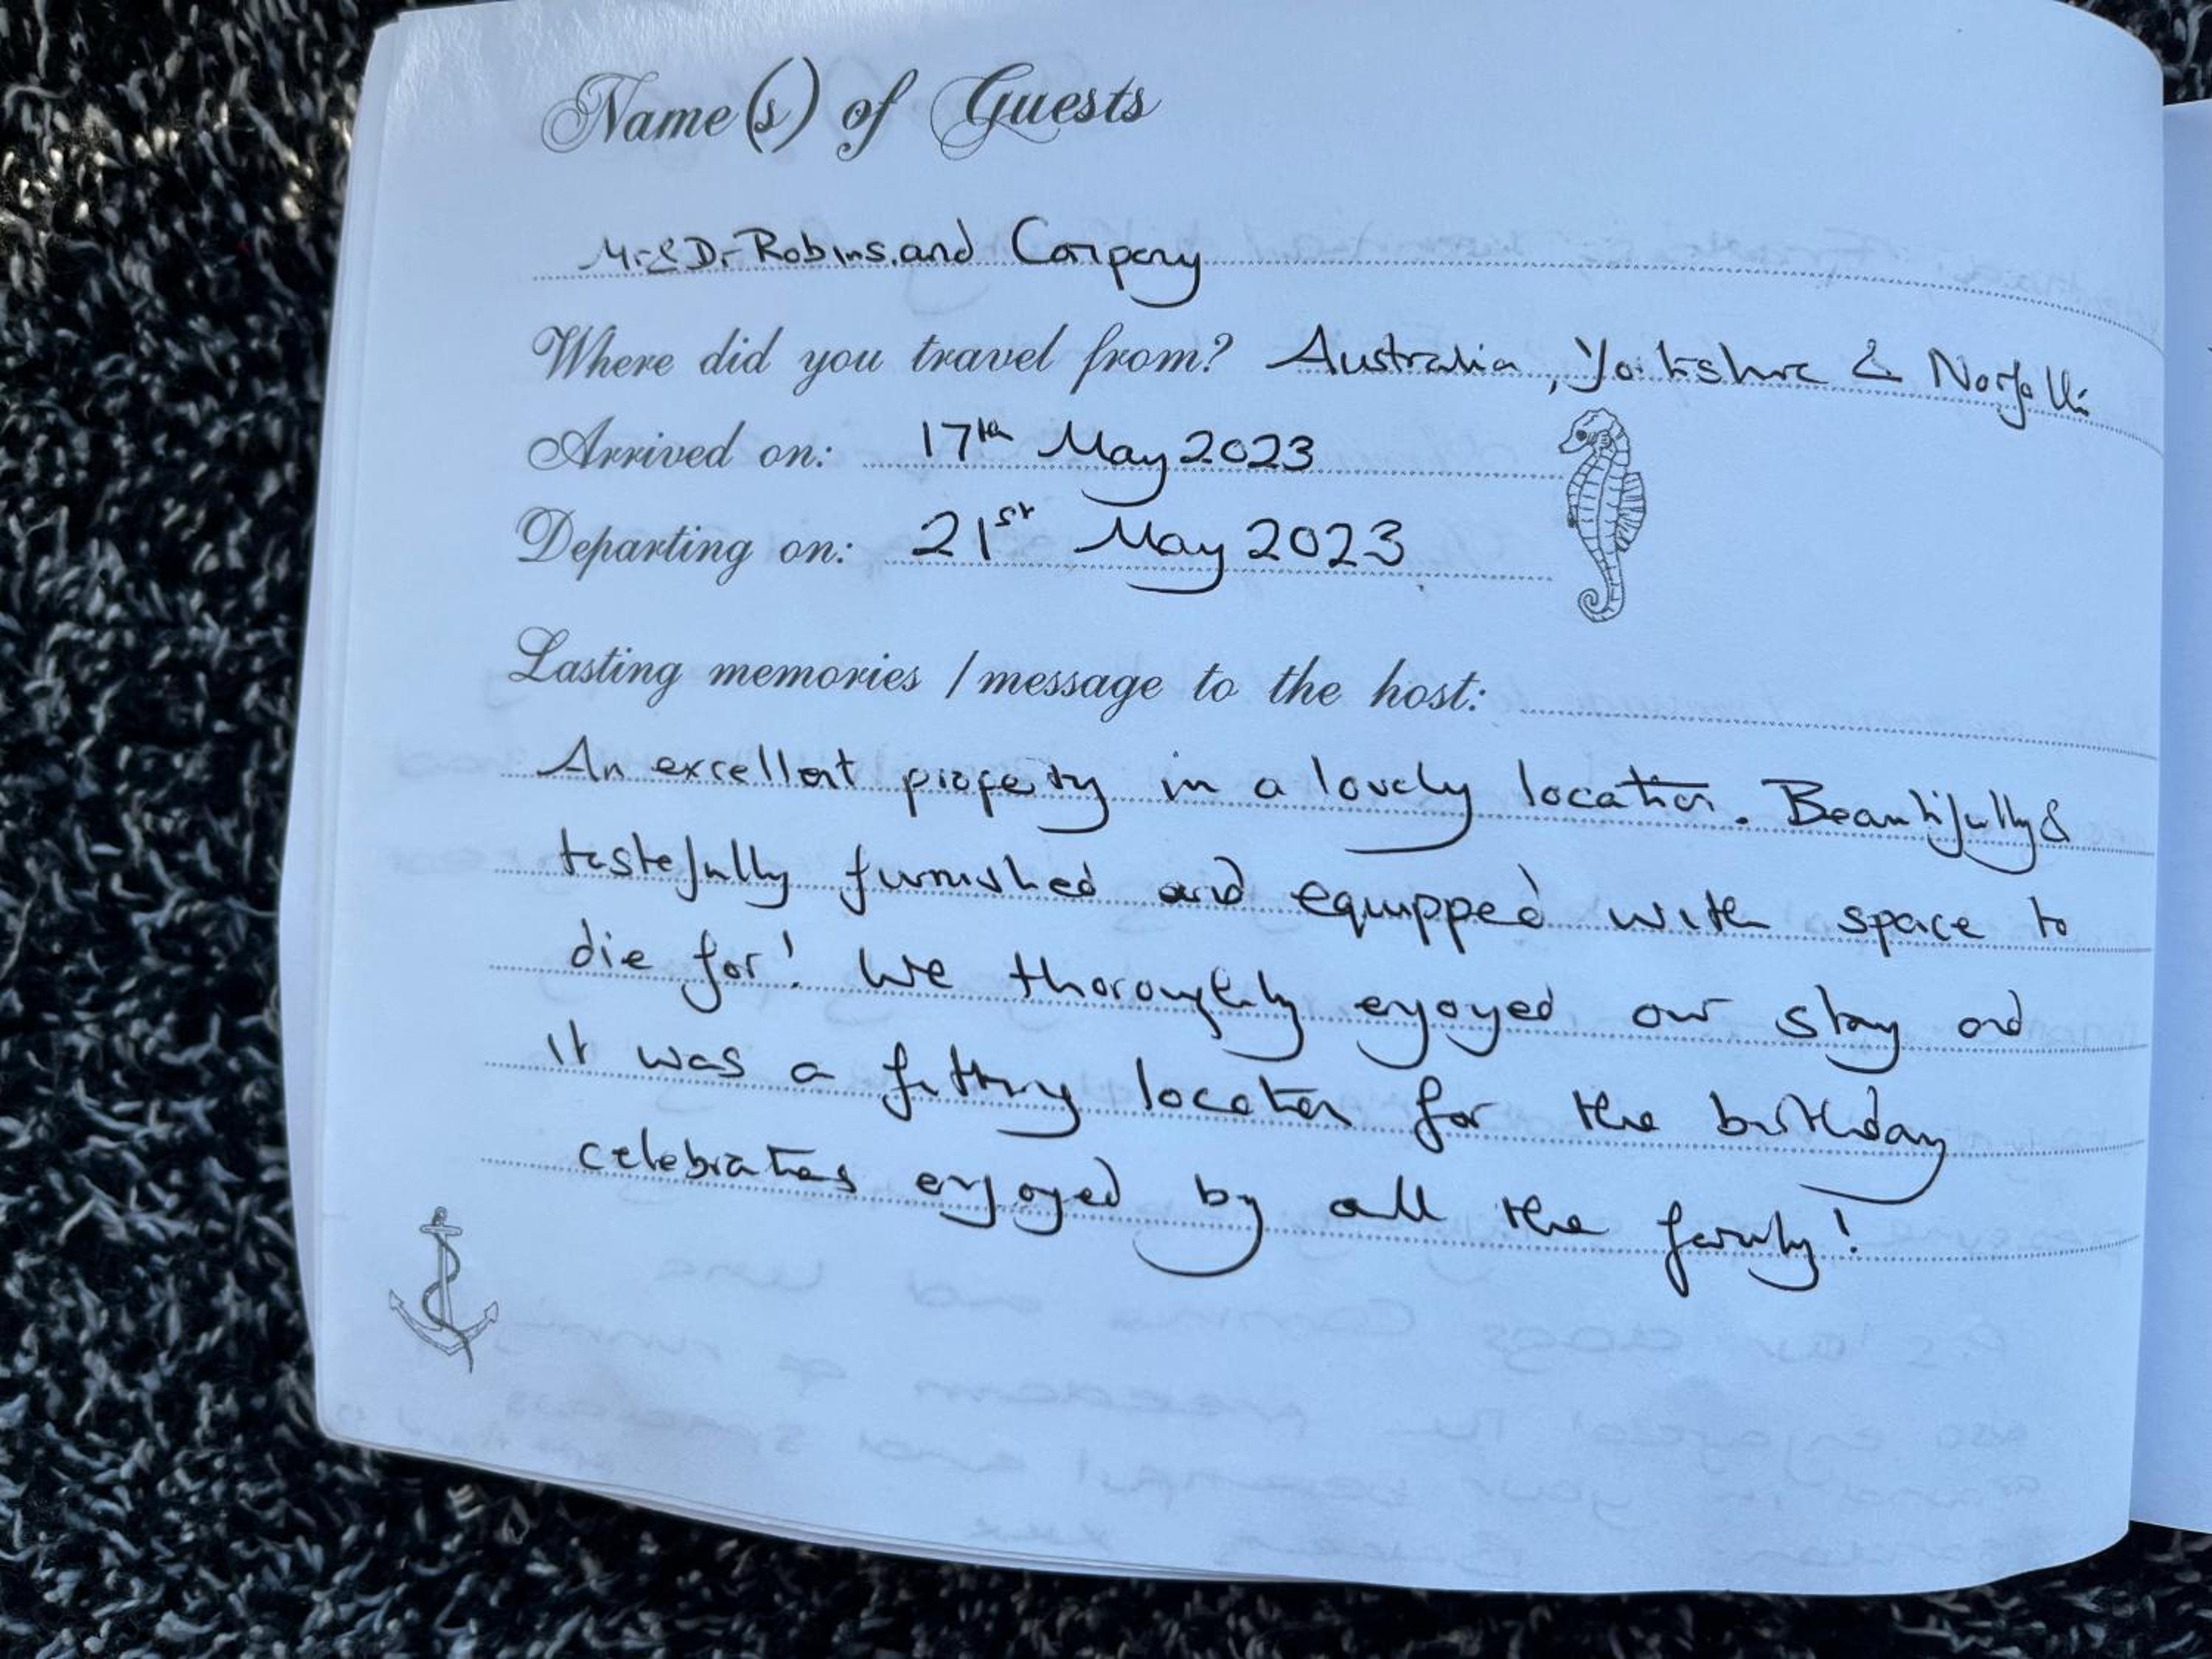 Name(s) of Guests
Mr & Dr Robins and Company
Where did you travel from? Australia, Yorkshire & Norfolk
Arrived on: 17th May 2023
Departing on: 21st May 2023
Lasting memories / message to the host:
An excellent property in a lovely location. Beautifully &
tastefully furnished and equipped with space to
die for! We thoroughly enjoyed our stay and
it was a fitting location for the birthday
celebrations enjoyed by all the family!